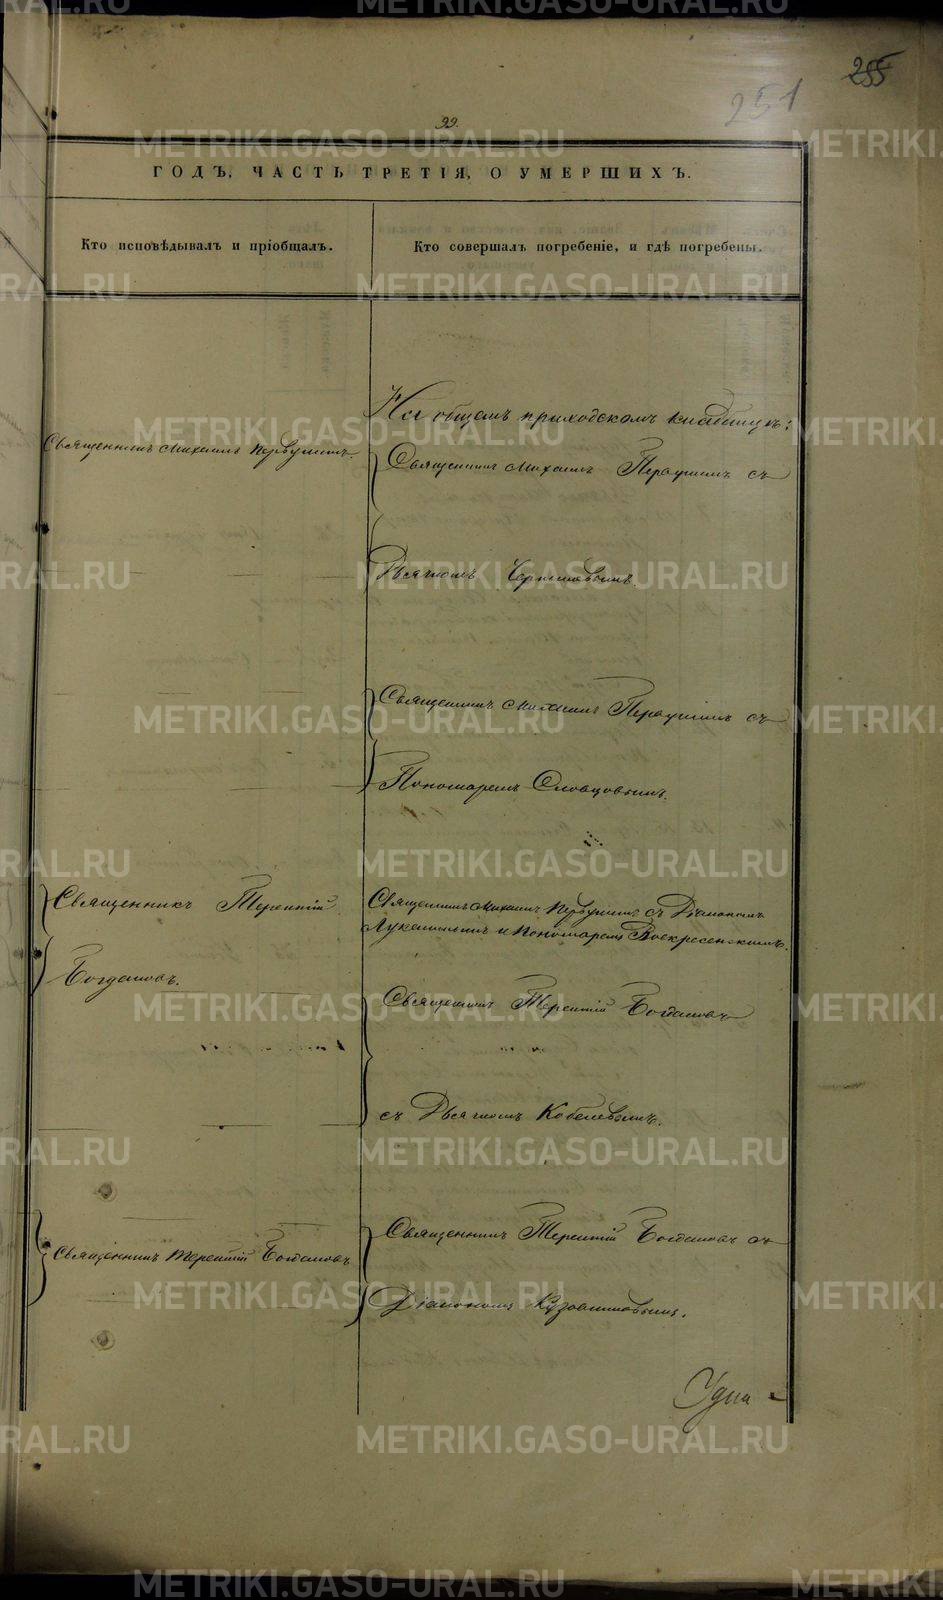 255
251
99.
ГОДЪ, ЧАСТЬ ТРЕТІЯ, О УМЕРШИХЪ.
Кто исповѣдывалъ и пріобщалъ.
Кто совершалъ погребеніе, и гдѣ погребены.
На общемъ приходскомъ кладбищѣ:
Священникъ Михаилъ Первушинъ.
Священникъ Михаилъ Первушинъ съ
Дьячкомъ
Священникъ Михаилъ Первушинъ съ
Пономаремъ Словцовымъ.
Священникъ Терентій
Богдановъ.
Священникъ Михаилъ Первушинъ съ Діакономъ
Лукинымъ и Пономаремъ Воскресенскимъ.
Священникъ Терентій Богдановъ
съ Дьячкомъ Кобелевымъ.
Священникъ Терентій Богдановъ
Священникъ Терентій Богдановъ съ
Діакономъ Кузовниковымъ.
METRIKI.GASO-URAL.RU